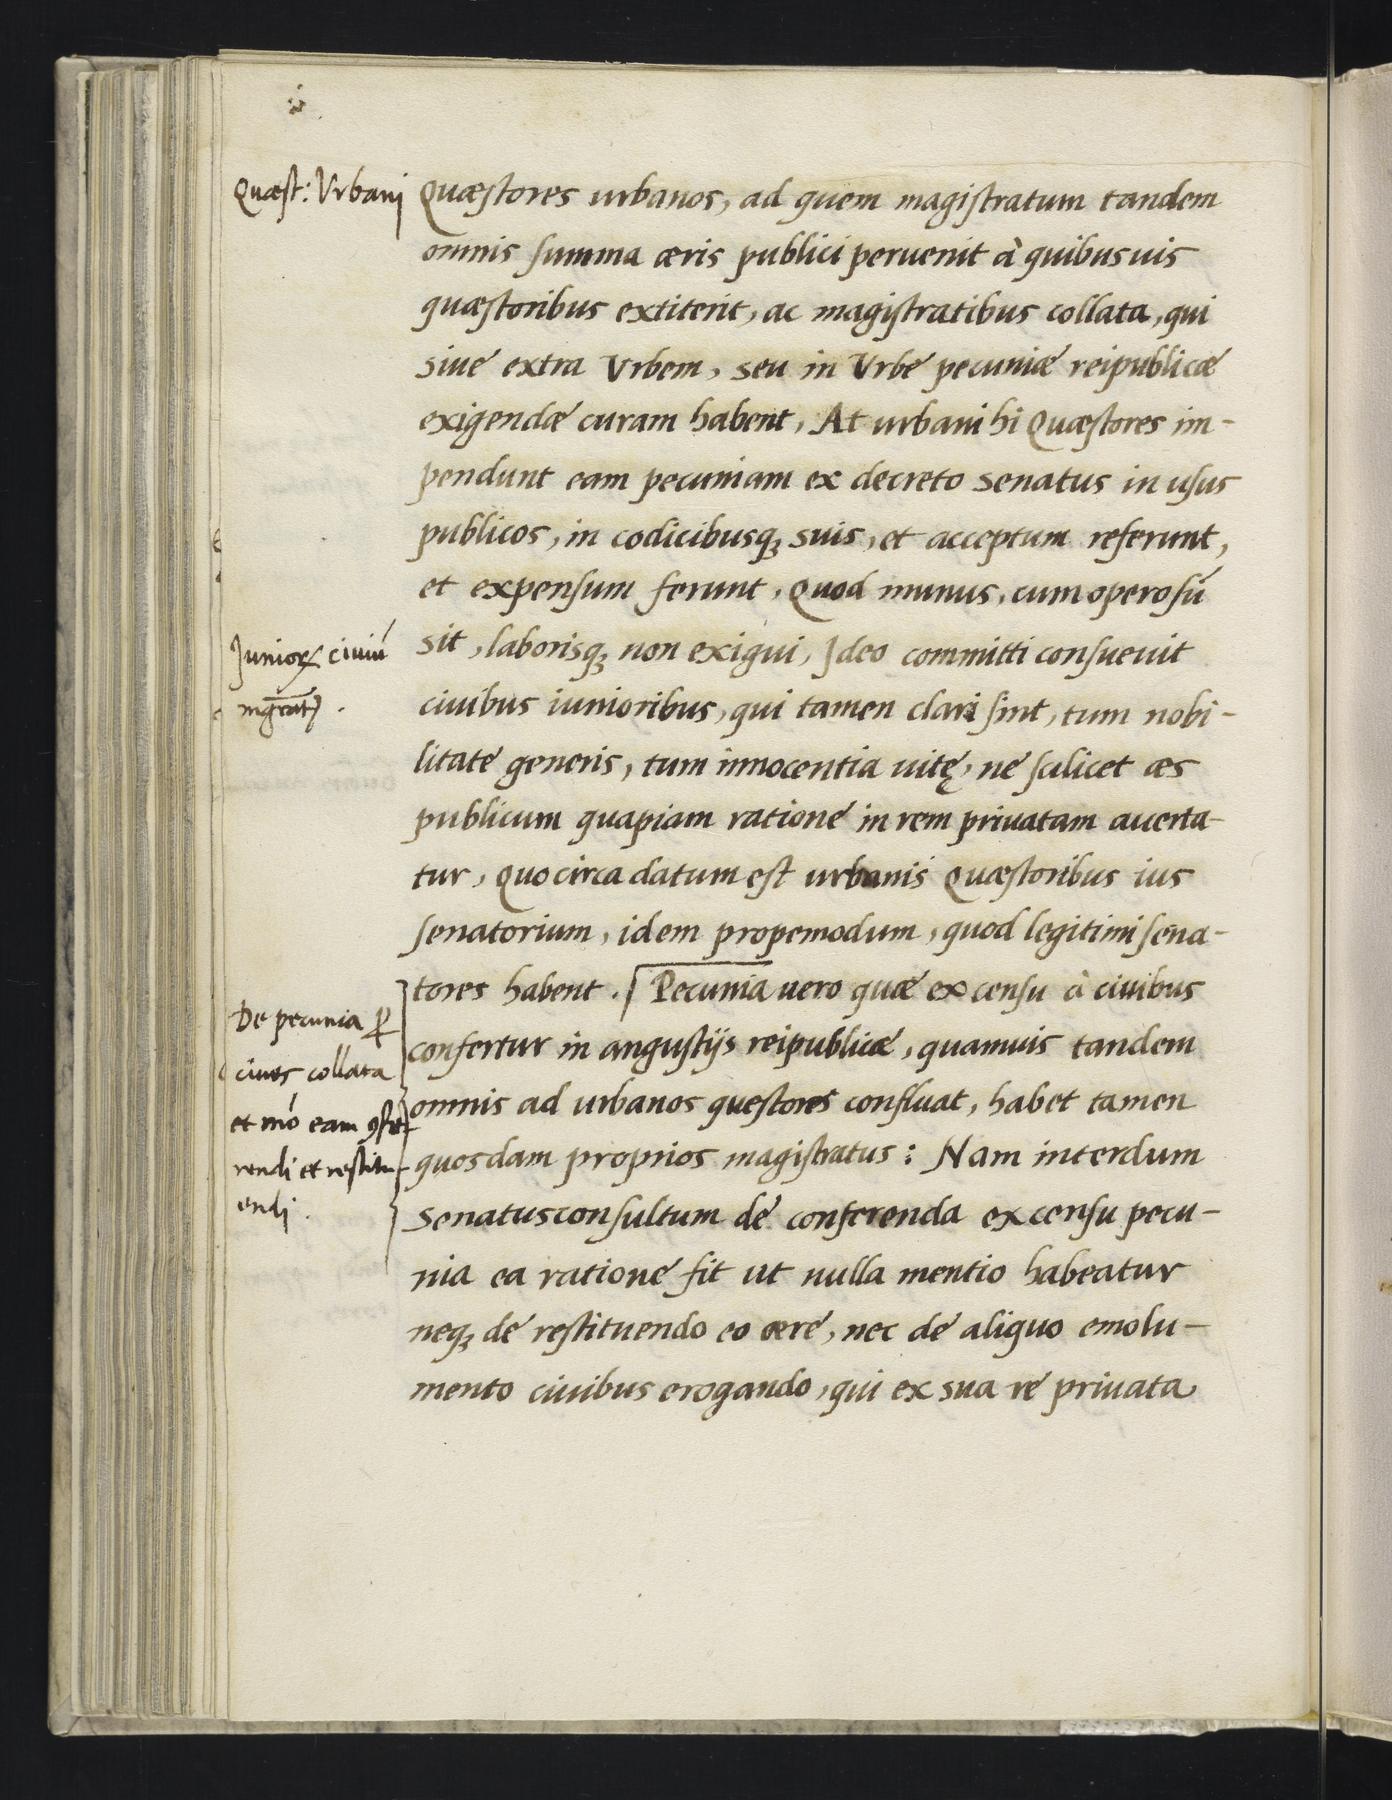 Quæst: Vrbani
Quæstores urbanos, ad quem magistratum tandem
omnis summa æris publici peruenit à quibusuis
quæstoribus extiterit, ac magistratibus collata, qui
siue extra Vrbem, seu in Vrbe pecuniæ reipublicæ
exigendæ curam habent, At urbani hi Quæstores im-
pendunt eam pecuniam ex decreto senatus in usus
publicos, in codicibusq; suis, et acceptum referunt,
et expensum ferunt, Quod munus, cum operosú
Junioꝝ ciuiú
sit, laborisq; non exigui, Ideo committi consueuit
ciuibus iunioribus, qui tamen clari sint, tum nobi-
litate generis, tum innocentia uitę, ne scilicet æs
publicum quapiam ratione in rem priuatam auerta-
tur, Quocirca datum est urbanis Quæstoribus ius
senatorium, idem propemodum, quod legitimi sena-
tores habent. Pecunia uero quæ ex censu à ciuibus
De pecunia ꝑ
ciues collata
et mó eam ꝯfe-
rendi et restitu-
endi.
confertur in angustijs reipublicæ, quamuis tandem
omnis ad urbanos questores confluat, habet tamen
quosdam proprios magistratus: Nam interdum
senatusconsultum de conferenda ex censu pecu-
nia ea ratione fit ut nulla mentio habeatur
neq; de restituendo eo ære, nec de aliquo emolu-
mento ciuibus erogando, qui ex sua re priuata